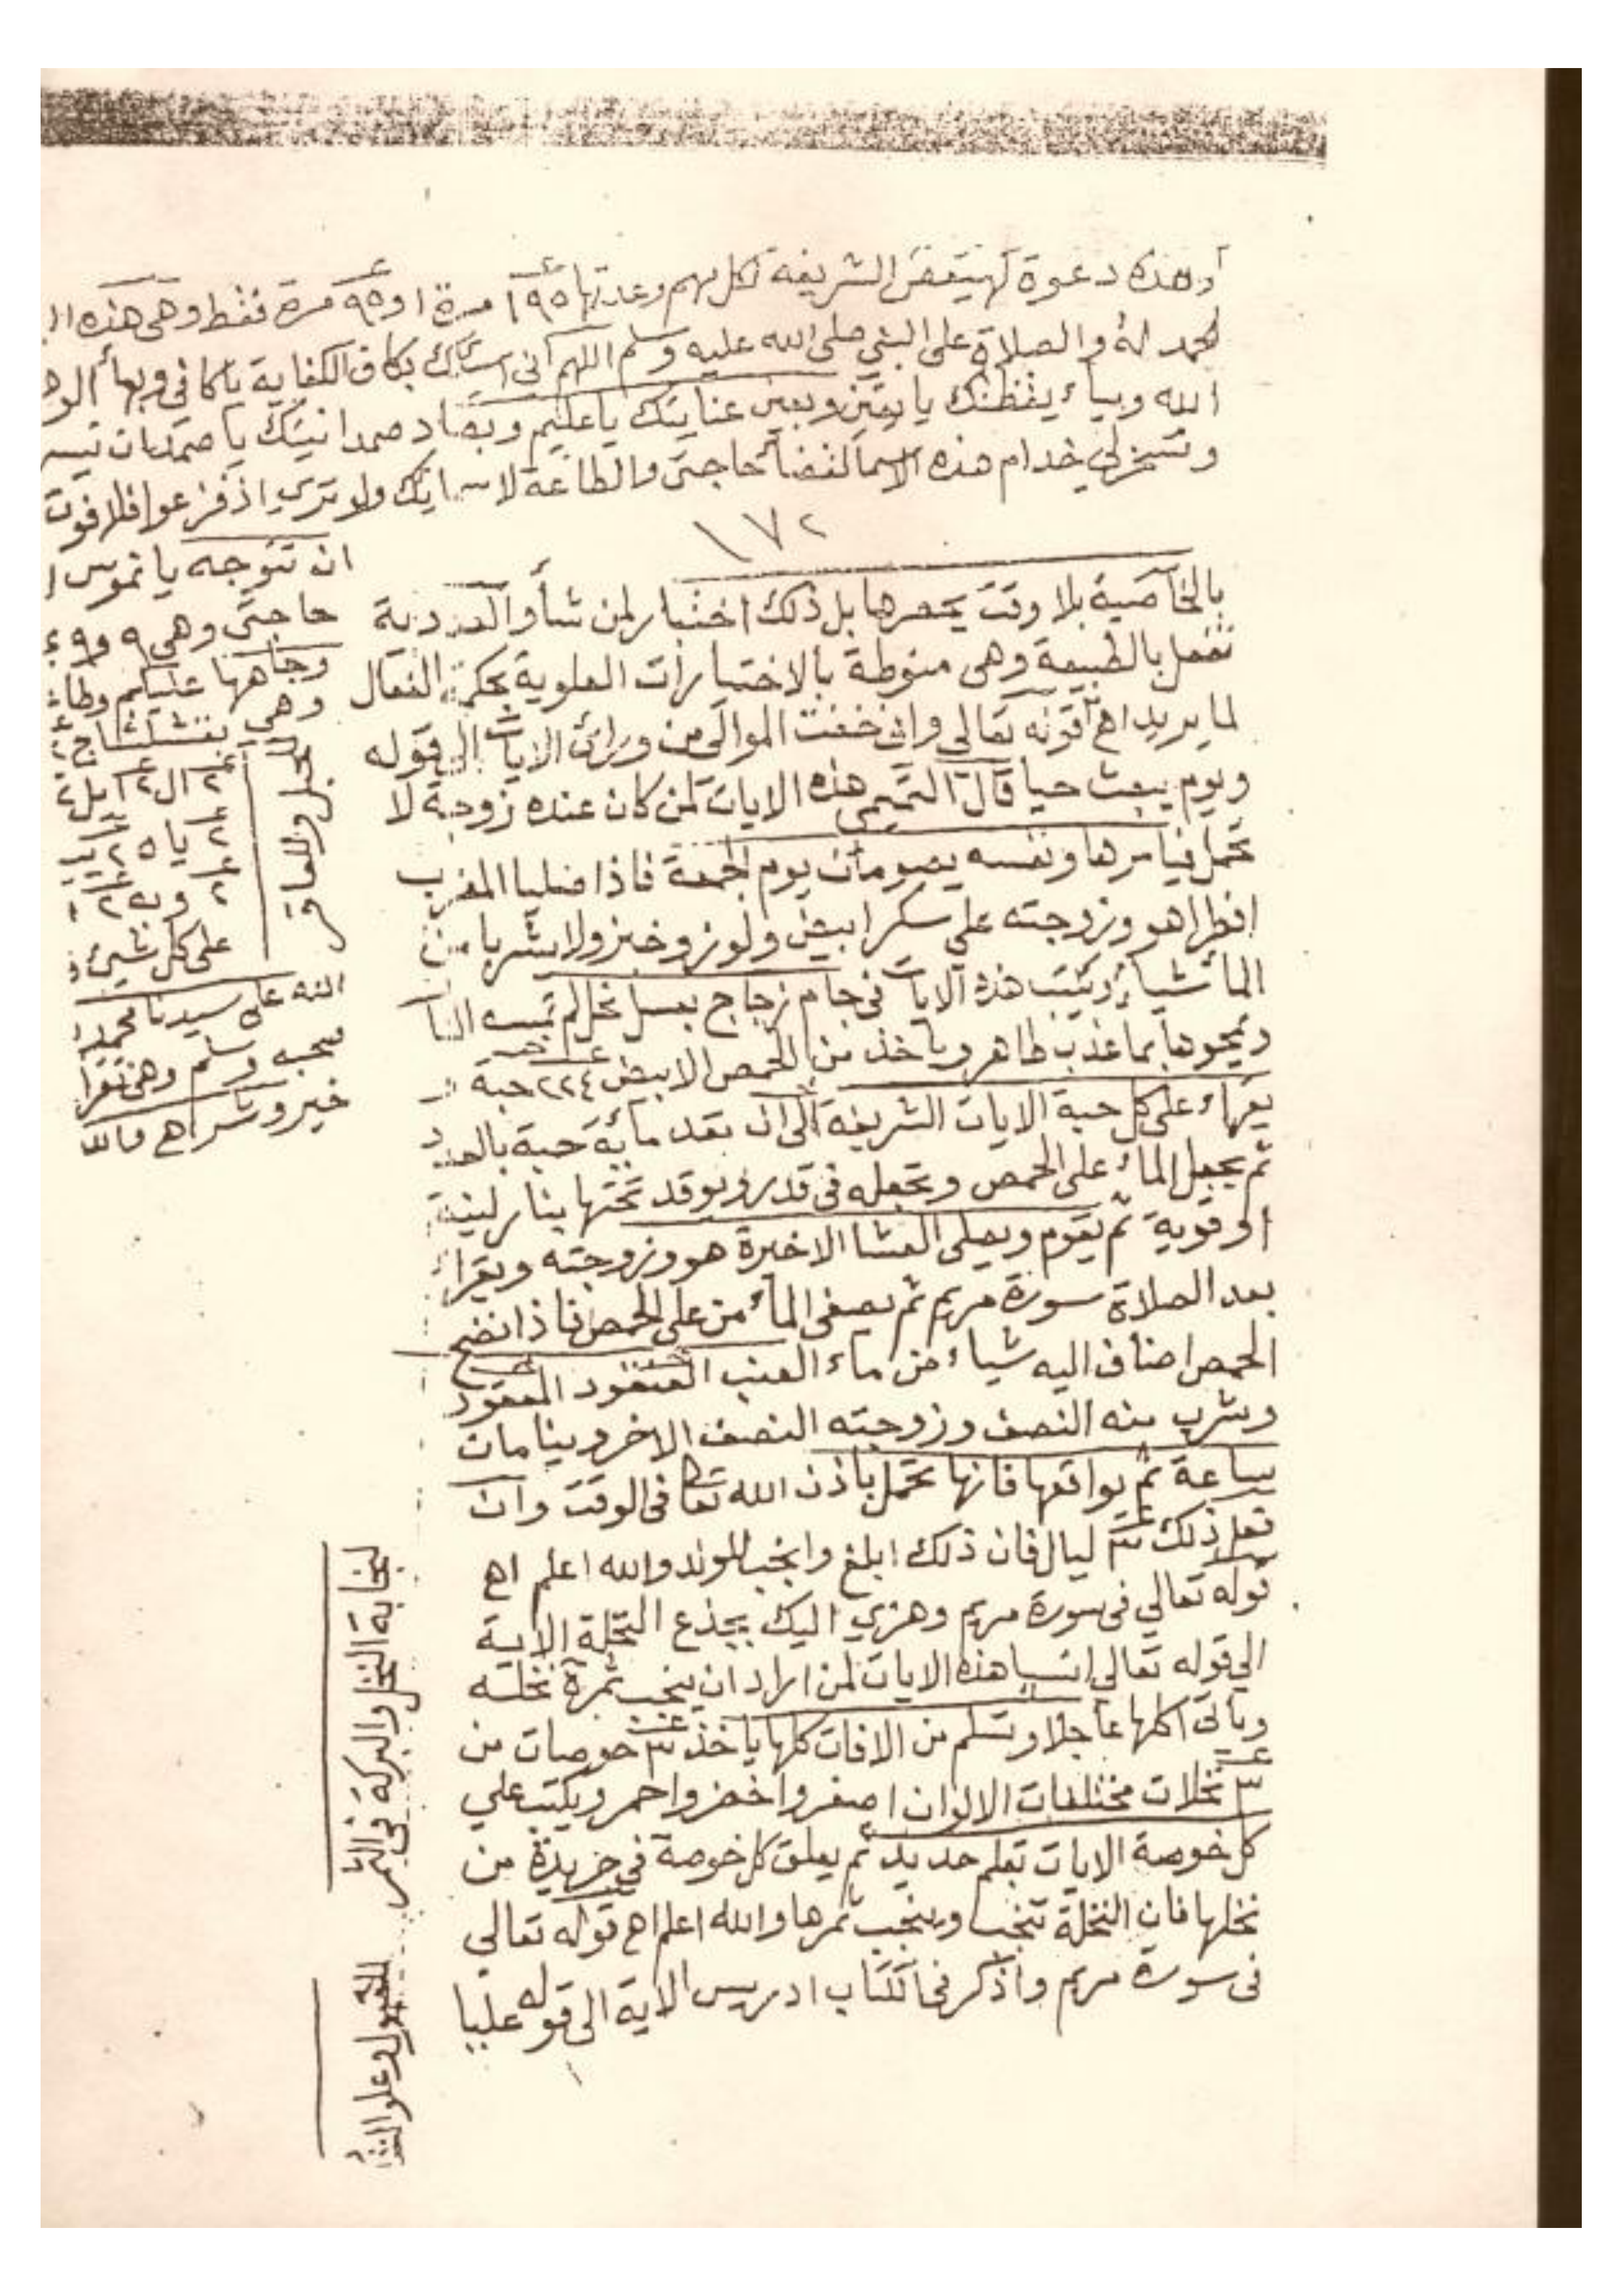 وهذه دعوة كهيعص الشريفة لكل مهم وعدتها ١٩٥ مرة او ٩٥ مرة فقط وهي هذه
الحمد لله والصلاة على النبي صلى الله عليه وسلم اللهم اني اسألك بكاف الكفاية يا كافي وبهاء
الله وبياء يقظتك يا يقين وبعين عنايتك يا عليم وبصاد صمدانيتك يا صمد ان تيسر
وتسخر لي خدام هذه الاسما لقضا حاجتي والطاعة لاسمائك ولو تري اذ فزعوا فلا فوت
١٧٢
بالخاصية بلا وقت يحصرها بل ذلك اختبار لمن شأ والعددية
تفعل بالطبيعة وهي منوطة بالاختيارات العلوية بحكمة الفعال
لما يريد اهـ قوله تعالي واني خفت الموالي من ورائ الايات الي قوله
ويوم يبعث حيا قال التميمي هذه الايات لمن كان عنده زوجة لا
تحمل فيامرها ونفسه يصومان يوم الجمعة فاذا صليا المغرب
افطرا هو وزوجته علي سكر ابيض ولوز وخبز ولا يشربا من
المأ شيأ وتكتب هذه الايات في جام زجاج بعسل نحل لم تمسه النا
ويمحوها بما عذب طاهر وياخذ من الحمص الابيض ٢٢٤ حبة
يقراء على كل حبة الايات الشريفة الى ان بعد مائة حبة بالعدد
ثم يجعل الماء على الحمص وتجعله في قدر ويوقد تحتها بنار لينة
او قوية ثم يقوم ويصلى العشا الاخيرة هو وزوجته ويقراء
بعد الصلاة سورة مريم ثم يصفى الماء من على الحمص فاذا نضج
الحمص اضاف اليه شياء من ماء العنب المعقود
وشرب منه النصف وزوجته النصف الاخر وينامان
ساعة ثم يواقعها فانها تحمل باذن الله تعا فى الوقت وان
فعل ذلك ٣ ليال فان ذلك ابلغ وانجب للولد والله اعلم اهـ
قوله تعالي فى سورة مريم وهزي اليك بجذع النخلة الاية
الي قوله تعالي انسيا هذه الايات لمن اراد ان ينجب ثمرة نخلته
وياتى اكلها عاجلا وتسلم من الافات كلها ياخذ ٣ خوصات من
٣ نخلات مختلفات الالوان اصفر واخضر واحمر ويكتب علي
كل خوصة الايات بقلم حديد ثم يعلق كل خوصة في جريدة من
نخلها فان النخلة تنجب وينجب ثمرها والله اعلم اهـ قوله تعالي
فى سورة مريم واذكر فى الكتاب ادريس الاية الى قوله عليا
ان تتوجه يا
حاجتى وهي ٩ و٩
وجاهها عليكم وطا
وهي
٢ ال ٢
٢ يا ٥ ٢
على كل شيئ
الله على سيدنا محمد
صحبه وسلم وهي تقرا
خير وشر اهـ
للحبل وللعاقر
لنجابة النخل والبركة في الثمر
للقبول وعلو